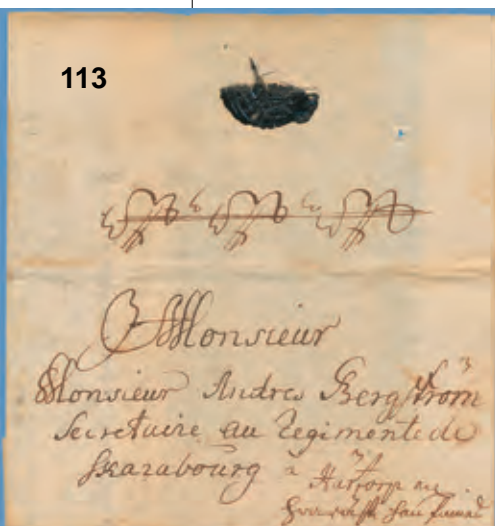 113
Monsieur
Monsieur Andres Bergström
Secretaire au Regimente de
Skarabourg à